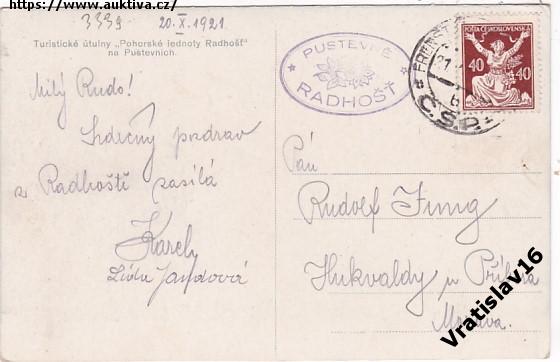 https://www.auktiva.cz/
3339 20.X.1921
Turistické útulny „Pohorské jednoty Radhošť“
na Pustevnich.
PUSTEVNĚ
RADHOŠŤ
POŠTA ČESKOSLOVENSKÁ
40 40
Č.S.P.
Milý Rudo!
Srdečný pozdrav
z Radhoště zasílá
Karel
Lida Jandová
Pán
Rudolf Jung
Hukvaldy u Příbora
Morava.
Vratislav16